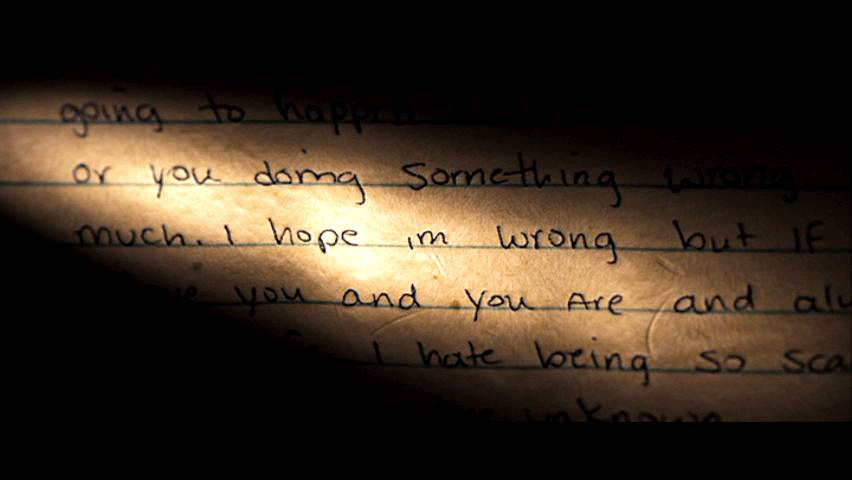 going to happen
or you doing something wrong
much. I hope im wrong but If
you and you Are and
I hate being so
unknown